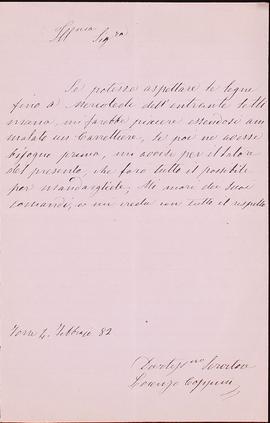 Ill.ma Sig.ra
Se potesse aspettare le legne
fino a Mercoledì dell'entrante setti
mana, mi farebbe piacere essendosi am
malato un Carrettiere, se poi ne avesse
bisogno prima, mi avvise per il latore
del presente, che farò tutto il possibile
per mandargliele, Mi onori dei suoi
comandi, e mi creda con tutto il rispetto
4 Febbraio 82
Servitore
Lorenzo